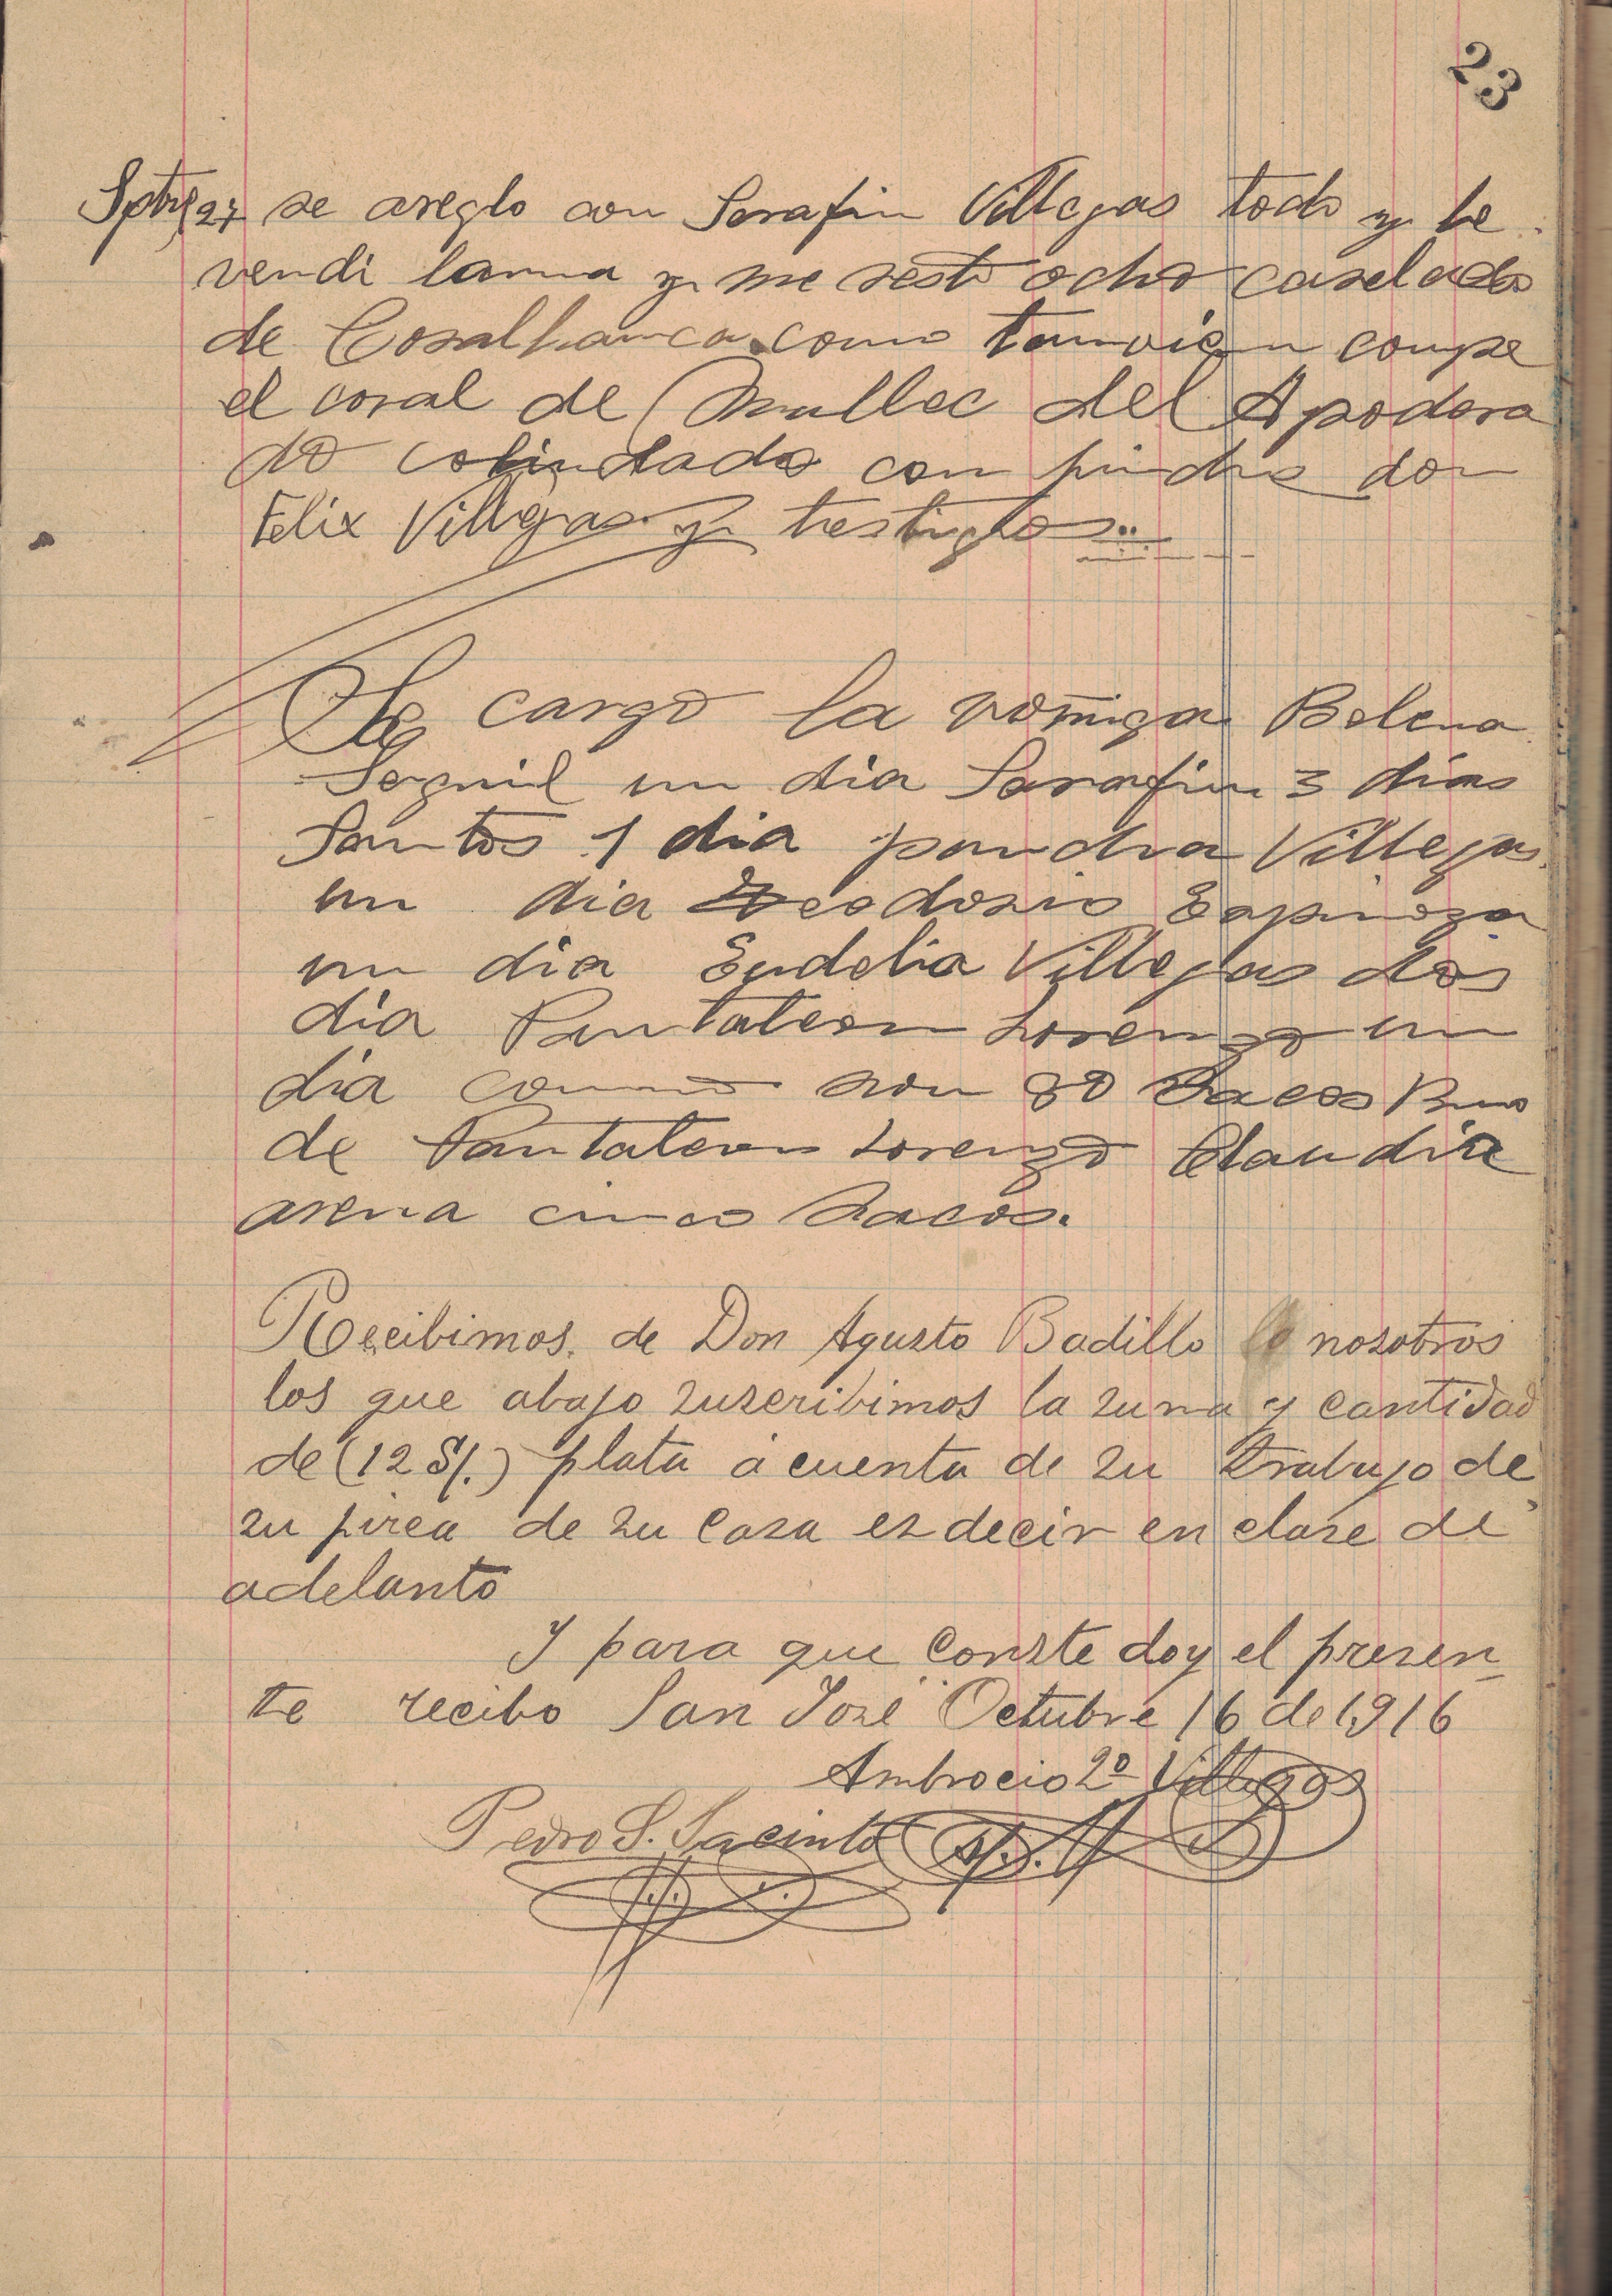 23
Sptre 27 se areglo con Serafin Villegas todo y le
vendi lanna y me resto ocho
de como tanvien compe
el coral de Mullec del Apodera
do colindado con don
Felix Villegas y trestigtos
Se cargo la Belena
un dia Sarafin 3 dias
Santos 1 dia pandra Villegas
un dia Teodosio Espinoza
un dia Eudelia Villegas dos
dia Pantaleon Lorenzo un
dia como son 80 sacos
de Pantaleon Lorenzo Claudia
arena cinco sacos.
Recibimos. de Don Agusto Badillo nosotros
los que abajo zuzeribimos la zuma y cantidad
de (12 S/.) plata a cuenta de zu trabajo de
zu pirca de zu caza ez decir en claze de
adelanto
Y para que conzte doy el prezen
te recibo San José Octubre 16 de 1916
Ambrocio 2º Villegas
Pedro S. Jacinto